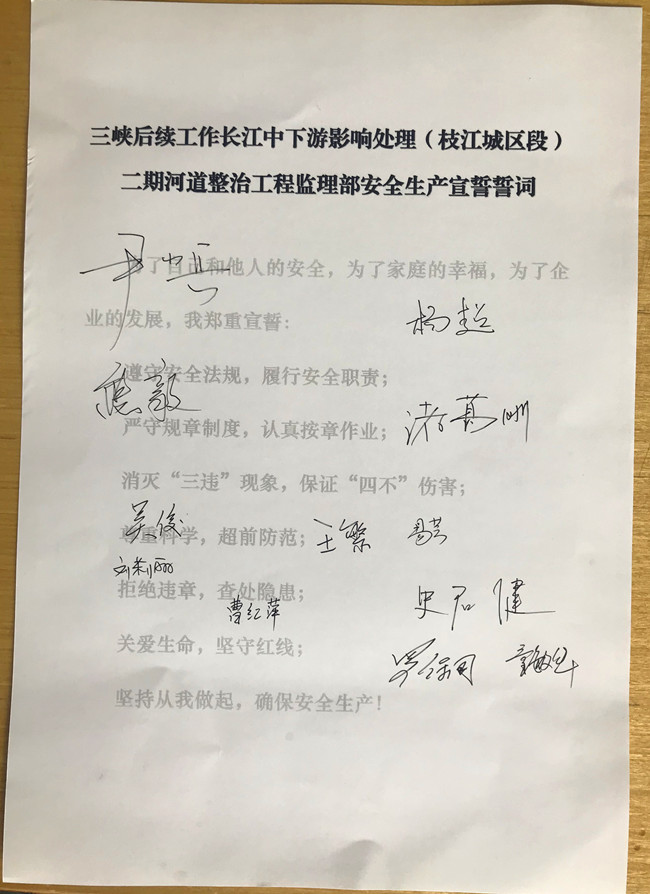 三峡后续工作长江中下游影响处理（枝江城区段）
二期河道整治工程监理部安全生产宣誓誓词
了自己和他人的安全，为了家庭的幸福，为了企
业的发展，我郑重宣誓：
杨超
遵守安全法规，履行安全职责；
严守规章制度，认真按章作业；
诸葛洲
消灭“三违”现象，保证“四不”伤害；
吴俊
尊重科学，超前防范；
王繁
刘莉丽
拒绝违章，查处隐患；
曹红萍
史君健
关爱生命，坚守红线；
坚持从我做起，确保安全生产！